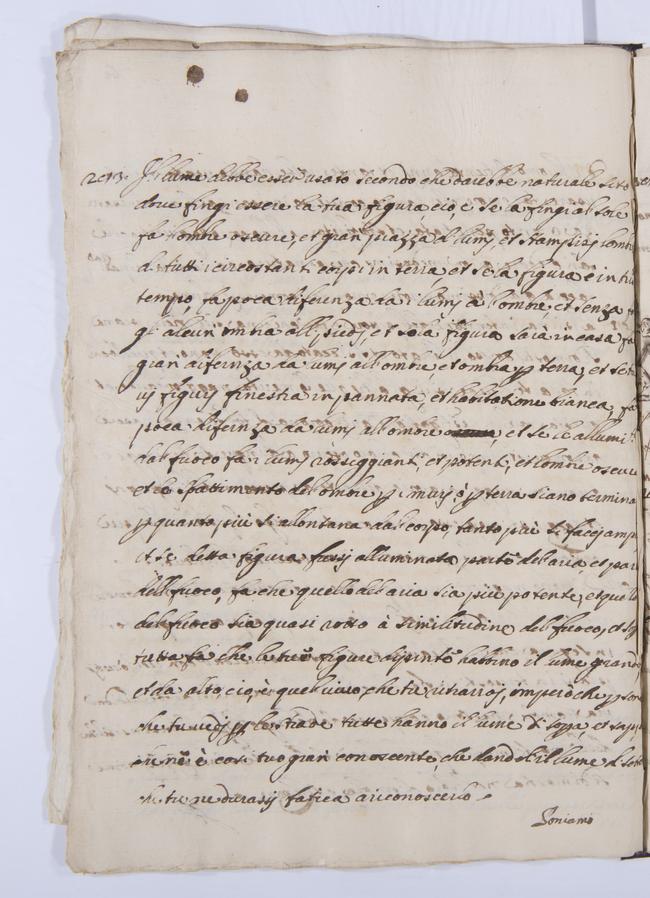 2013. Il lume debbe esser usato secondo che darebbe naturale sito
dove fingi essere la tua figura, cio, è se la fingi al sole
fa l'ombre oscure, et gran piazza d lumj, et stampiraj lombre
di tutti i circostanti corpi in terra et se la figura è in tri
tempo, fa poca diferenza da i lumj à l'ombre, et senza fa
gl alcun ombra alli piedj, et se la figura sarà in casa fa
gran diferenza da lumj all ombre, et ombra p terra, et se t
uj figurj finestra inpannata, et habitatione bianca, fa
poca diferenza da lumj all ombre, et se le allumi
dal fuoco fa i lumj rosseggianti et potenti, et l'ombre oscure
et lo sbattimento del ombre p i murj, ò p terra siano termina
p quanto più si allontana dal corpo, tanto più si faccj amp
et se detta figura fussj alluminata parte del aria, et par
dell fuoco, fa che quello del aria sia piu potente, et quello
del fuoco sia quasi rosso à similitudine del fuoco, et sop
tutto fa che le tue figure dipinte habbino il lume grande
et da alto, cio, è quel vivo, che tu ritrarraj, imperò che p son
che tu vedj p le strade tutte hanno il lume di sopra, et sappi
che nõ è cosi tuo gran conoscente, che dandoli il lume d sotto
che tu ne durassj fatica a riconoscerlo.
Poniamo